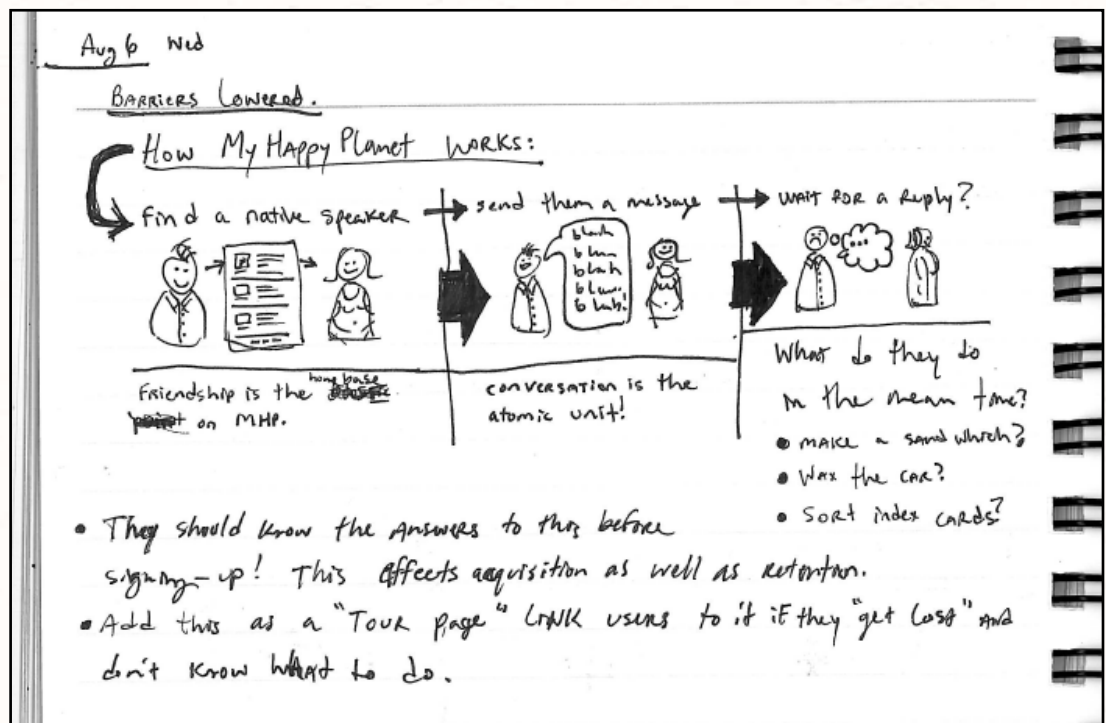 Aug 6 Wed
BARRIERS LOWERED.
How My Happy Planet works:
Find a native speaker
send them a message
WAIT FOR A Reply?
blah
blah
blah
blah
blah!
...
Friendship is the home base
on MHP.
conversation is the
atomic unit!
What do they do
in the mean time?
• MAKE a sandwhich?
• Wax the CAR?
• SORT index CARDS?
• They should know the ANSWERS to this before
signing-up! This effects acquisition as well as retention.
• Add this as a "Tour page" LINK users to it if they "get lost" AND
don't know WHAT to do.